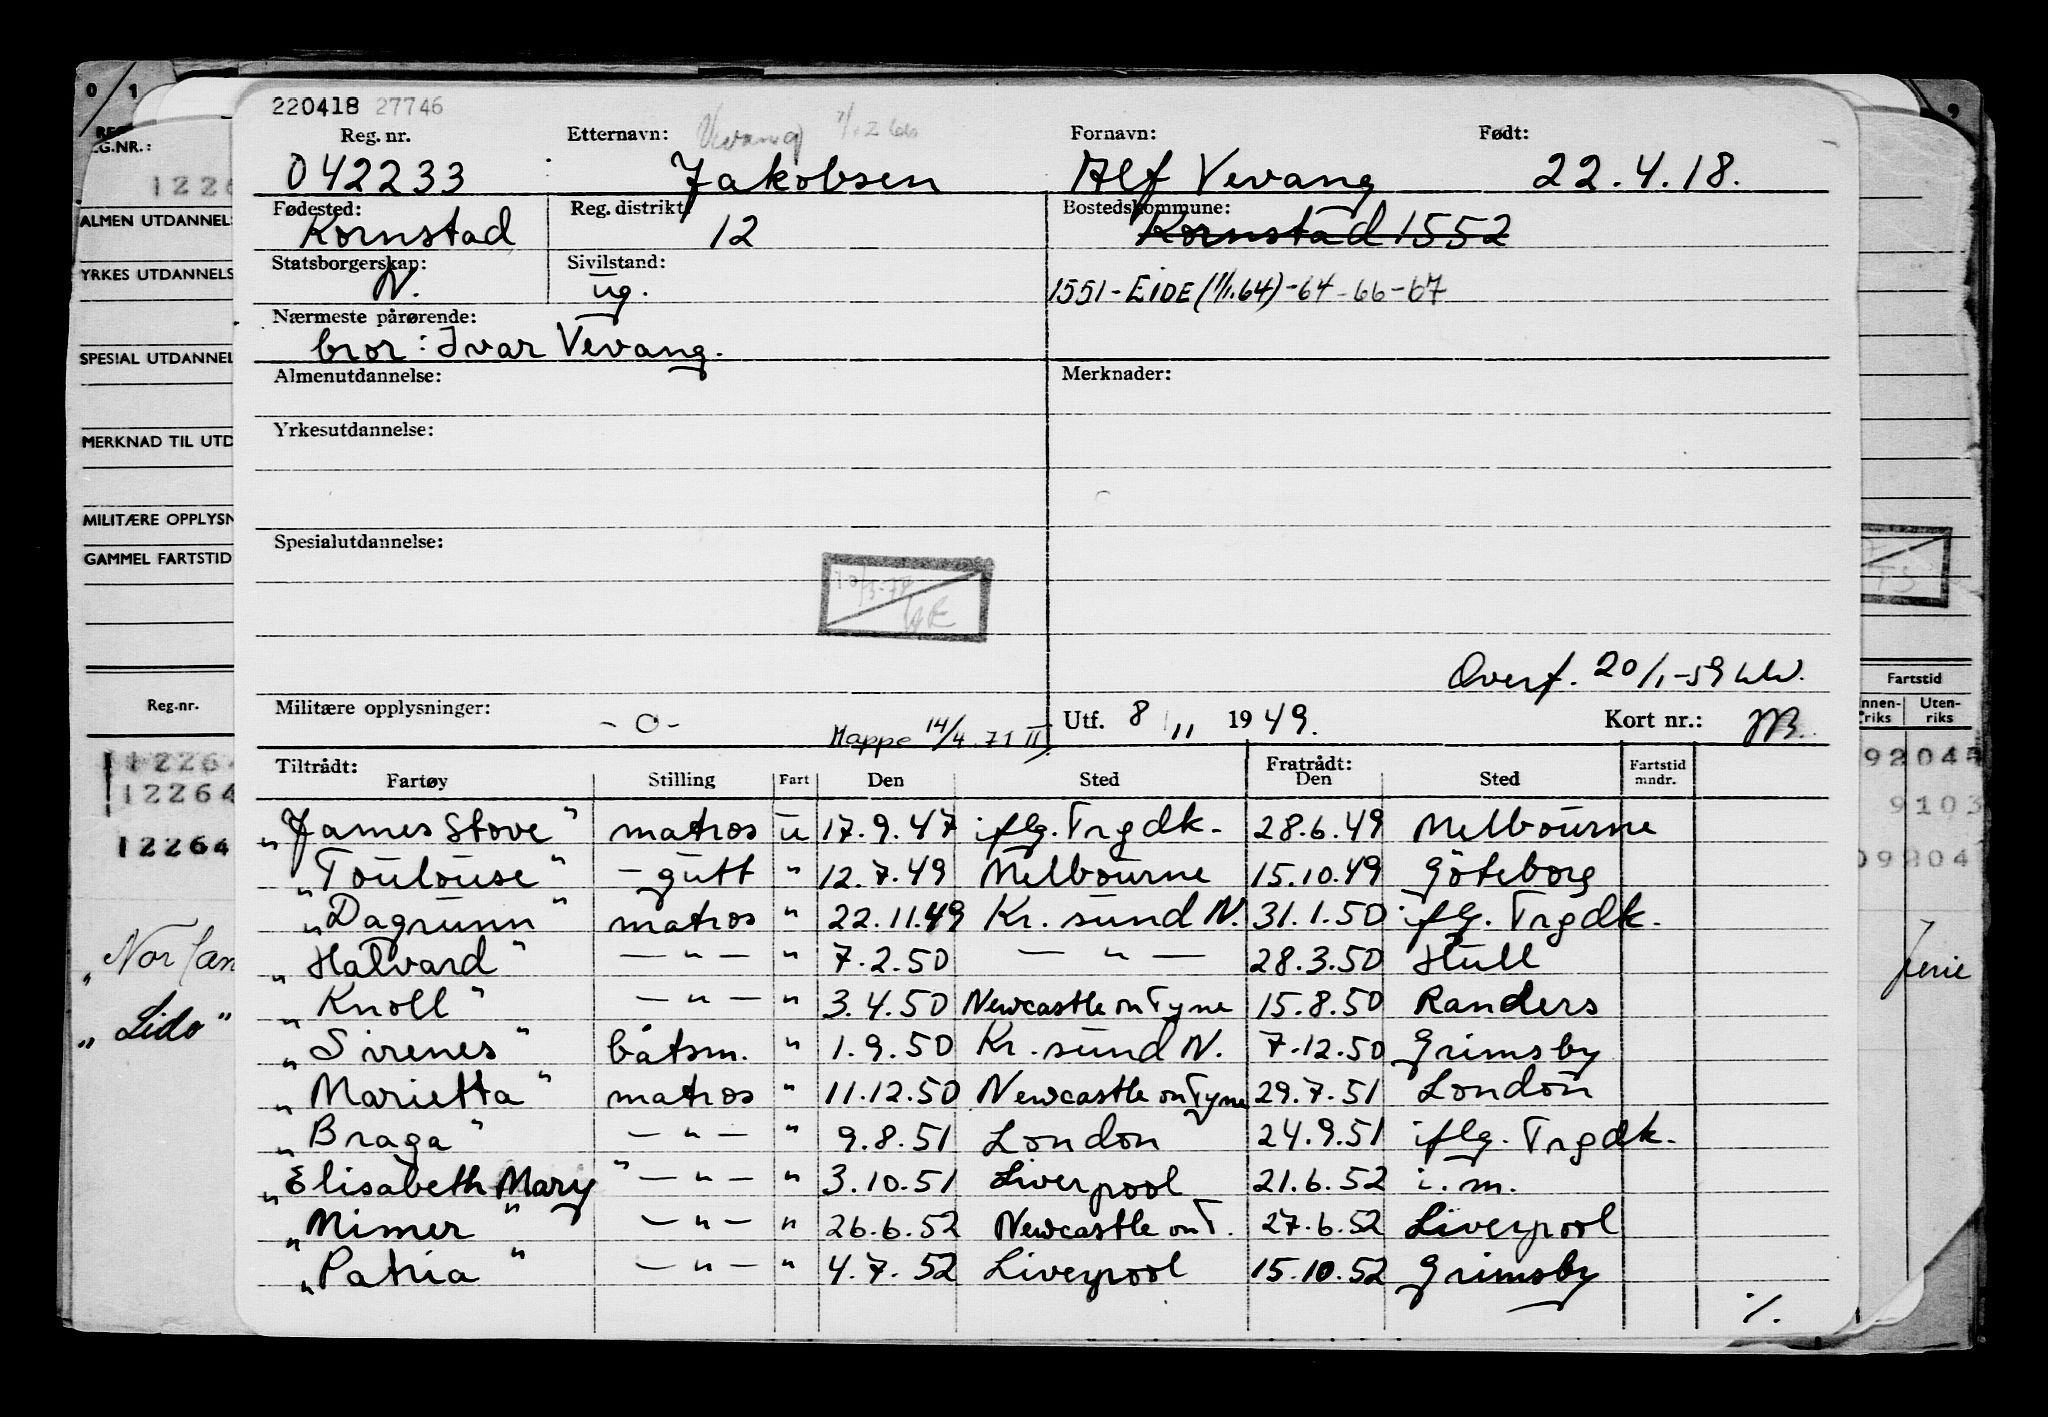 220418 27746
Reg. nr. Etternavn: Vevang Fornavn: Født:
042233 Jakobsen Alf Vevang 22.4.18.
Fødested: Reg. distrikt: Bostedskommune:
Kornstad 12 Kornstad 1552
Statsborgerskap: Sivilstand:
N. ug. 1551 - EIDE (1/1.64) -64 -66-67
Nærmeste pårørende:
bror: Ivar Vevang.
Almenutdannelse: Merknader:
Yrkesutdannelse:
Spesialutdannelse:
Overf. 20/1-59
Militære opplysninger: -0- Mappe 14/4.71 II Utf. 8/11 1949. Kort nr.:
Tiltrådt: Fratrådt: Fartstid
Fartøy Stilling Fart Den Sted Den Sted mndr.
"James Stove" matros u 17.9.47 iflg. Trgdk. 28.6.49 Melbourne
"Toulouse" - gutt " 12.7.49 Melbourne 15.10.49 Göteborg
"Dagrunn" matros " 22.11.49 Kr. sund N. 31.1.50 iflg. Trgdk.
"Halvard" — " — " 7.2.50 — " — 28.3.50 Hull
"Knoll" — " — " 3.4.50 Newcastle on Tyne 15.8.50 Randers
"Sirenes" båtsm. " 1.9.50 Kr. sund N. 7.12.50 Grimsby
"Marietta" matros " 11.12.50 Newcastle on Tyne 29.7.51 London
"Braga" — " — " 9.8.51 London 24.9.51 iflg. Trgdk.
"Elisabeth Mary" — " — " 3.10.51 Liverpool 21.6.52 i.m.
"Mimer" — " — " 26.6.52 Newcastle on T. 27.6.52 Liverpool
"Patria" — " — " 4.7.52 Liverpool 15.10.52 Grimsby
./.
0/1
G.NR.:
1226
ALMEN UTDANNELS
YRKES UTDANNELS
SPESIAL UTDANNEL
MERKNAD TIL UTD
MILITÆRE OPPLYSN
GAMMEL FARTSTID
Reg.nr.
12264
12264
12264
"Lido"
9
TS
Fartstid
nnen-riks Uten-riks
92045
9103
09204